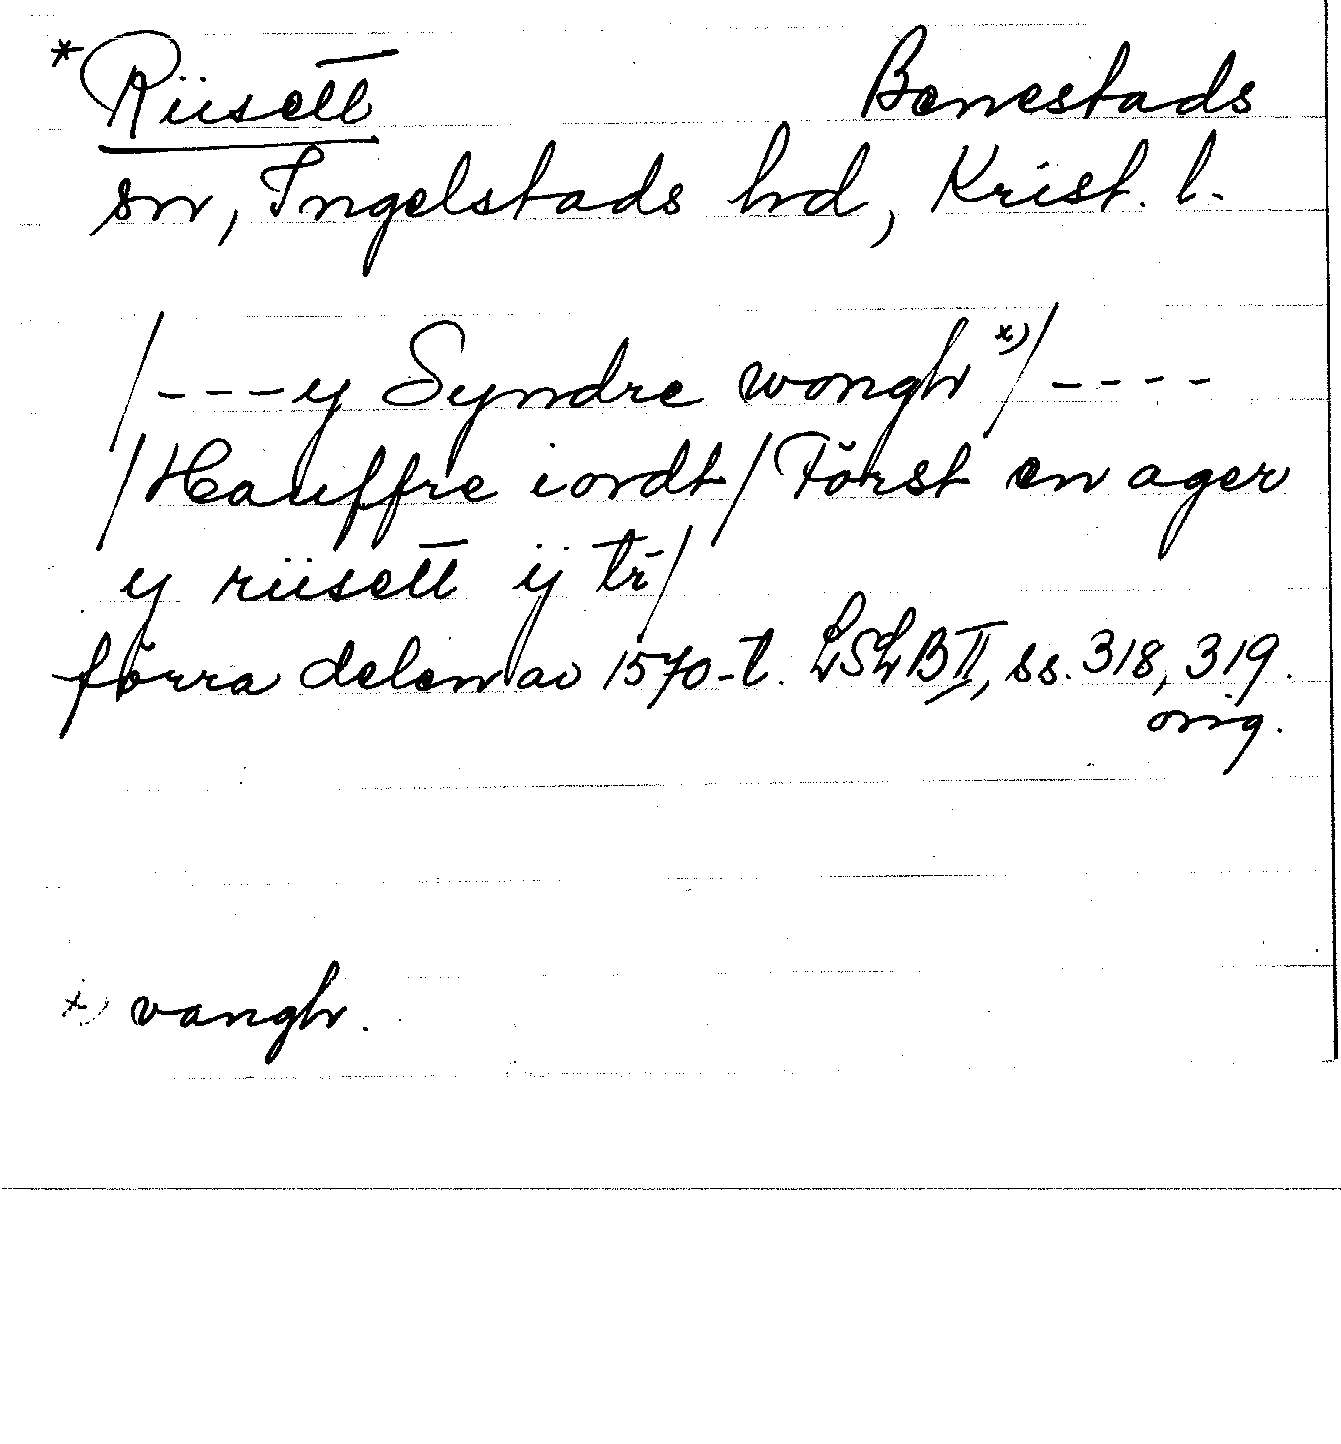 * Riisett Benestads
sn, Ingelstads hd, Krist. l.
/---y Syndre wongh x)/----
/Hauffre iordt/Först en ager
y riisett ij tr/
förra delen av 1570-t. LSLB II, ss. 318, 319.
orig.
x) vangh.